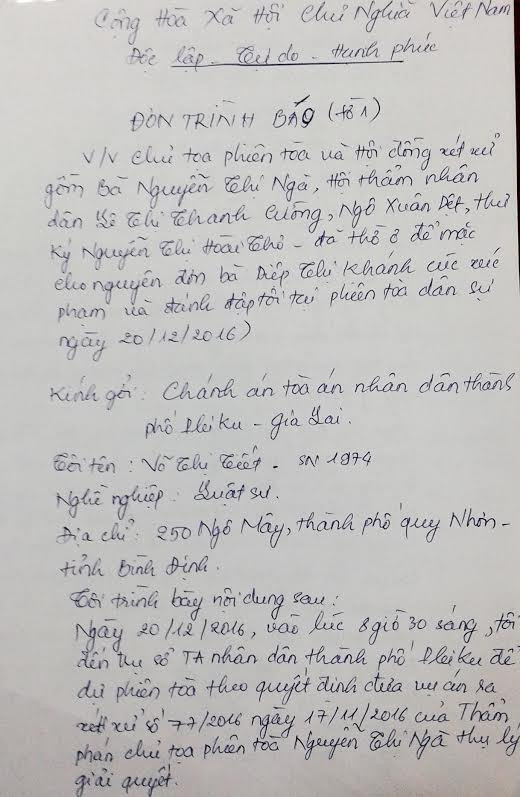 Cộng Hòa Xã Hội Chủ Nghĩa Việt Nam
Độc lập - Tự do - Hạnh phúc
ĐƠN TRÌNH BÁO (tờ 1)
V/v chủ tọa phiên tòa và Hội đồng xét xử
gồm Bà Nguyễn Thị Ngà, Hội thẩm nhân
dân Lê Thị Thanh Cường, Ngô Xuân Dết, thư
ký Nguyễn Thị Hoài Thơ - đã thờ ơ để mặc
cho nguyên đơn bà Diệp Thị Khánh cúc xúc
phạm và đánh đập tôi tại phiên tòa dân sự
ngày 20/12/2016)
Kính gởi: Chánh án tòa án nhân dân thành
phố Pleiku - gia Lai.
Tôi tên: Võ Thị Tiết. SN 1974
Nghề nghiệp: Luật sư.
Địa chỉ: 250 Ngô Mây, thành phố quy Nhơn -
tỉnh Bình Định.
Tôi trình bày nội dung sau:
Ngày 20/12/2016, vào lúc 8 giờ 30 sáng, tôi
đến trụ sở TA nhân dân thành phố Pleiku để
dự phiên toà theo quyết định đưa vụ án ra
xét xử số 77/2016 ngày 17/11/2016 của Thẩm
phán chủ tọa phiên toà Nguyễn Thị Ngà thụ lý
giải quyết.